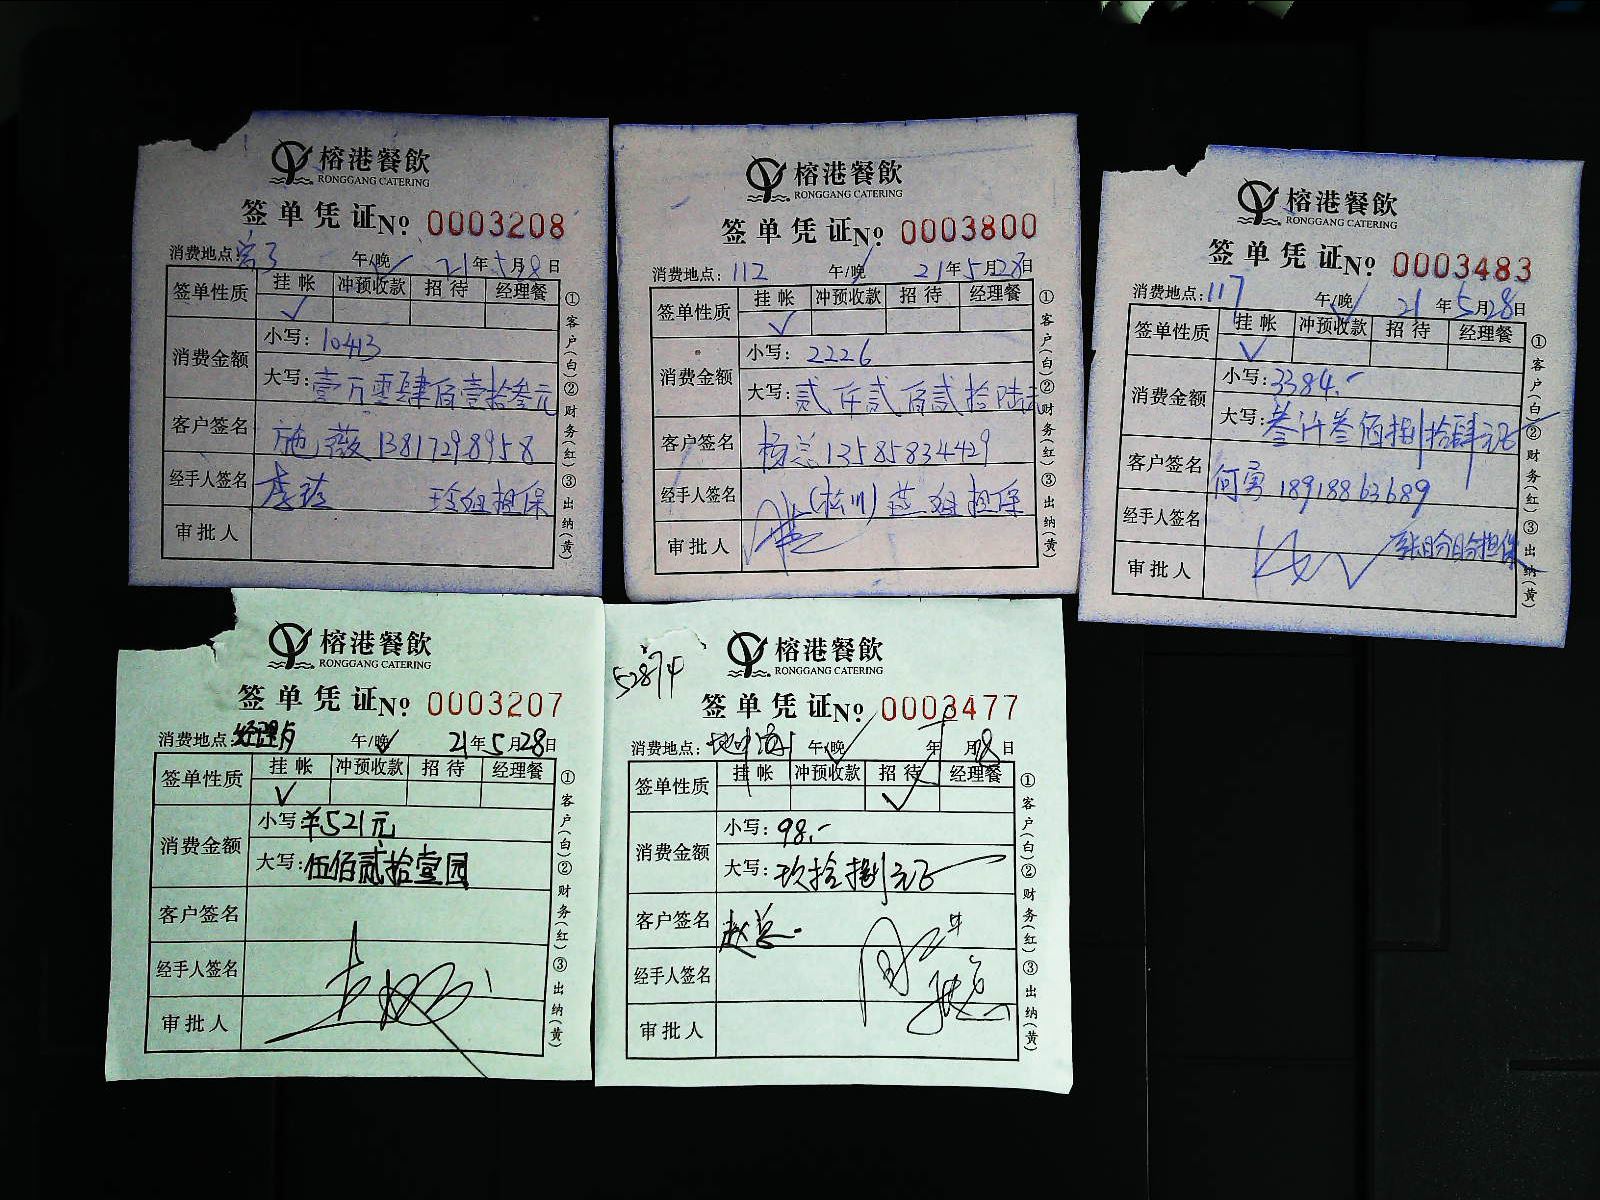 榕港餐飲
RONGGANG CATERING
签单凭证No 0003208
消费地点: 午/晚 21年5月8日
签单性质 挂帐 冲预收款 招待 经理餐
✓
消费金额 小写: 10413
大写: 壹万零肆佰壹拾叁元
客户签名 施薇 13817298958
经手人签名 玲姐担保
审批人
①客户(白)②财务(红)③出纳(黄)
榕港餐飲
RONGGANG CATERING
签单凭证No 0003800
消费地点: 112 午/晚 21年5月28日
签单性质 挂帐 冲预收款 招待 经理餐
✓
消费金额 小写: 2226
大写: 贰仟贰佰贰拾陆元
客户签名 杨总 13585834429
经手人签名 (松川) 姐担保
审批人
①客户(白)②财务(红)③出纳(黄)
榕港餐飲
RONGGANG CATERING
签单凭证No 0003483
消费地点: 117 午/晚 21年5月28日
签单性质 挂帐 冲预收款 招待 经理餐
✓
消费金额 小写: 3384.-
大写: 叁仟叁佰捌拾肆元正
客户签名 何勇 18918863689
经手人签名 担保
审批人
①客户(白)②财务(红)③出纳(黄)
榕港餐飲
RONGGANG CATERING
签单凭证No 0003207
消费地点: 午/晚 21年5月28日
签单性质 挂帐 冲预收款 招待 经理餐
✓
消费金额 小写: ¥521元
大写: 伍佰贰拾壹圆
客户签名
经手人签名
审批人
①客户(白)②财务(红)③出纳(黄)
52874
榕港餐飲
RONGGANG CATERING
签单凭证No 0003477
消费地点: 午/晚 年 月 日
签单性质 挂帐 冲预收款 招待 经理餐
✓
消费金额 小写: 98.-
大写: 玖拾捌元正
客户签名 赵总
经手人签名
审批人
①客户(白)②财务(红)③出纳(黄)